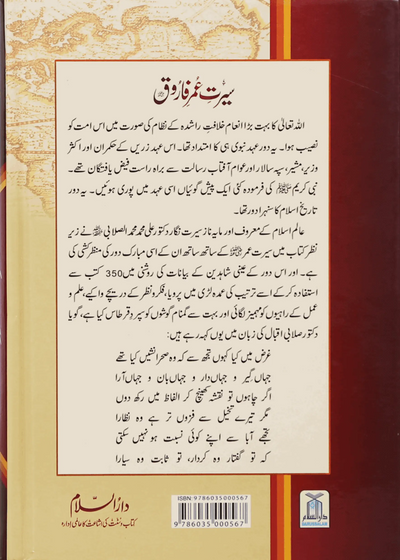 سیرتِ عمر فاروق رضی اللہ عنہ
اللہ تعالیٰ کا بہت بڑا انعام خلافتِ راشدہ کے نظام کی صورت میں اس امت کو
نصیب ہوا۔ یہ دور عہدِ نبوی ہی کا امتداد تھا۔ اس عہدِ زریں کے حکمران اور اکثر
وزیر، مشیر، سپہ سالار اور عوام آفتابِ رسالت سے براہ راست فیض یافتگان تھے۔
نبی کریم ﷺ کی فرمودہ کئی ایک پیش گوئیاں اسی عہد میں پوری ہوئیں۔ یہ دور
تاریخ اسلام کا سنہرا دور تھا۔
عالم اسلام کے معروف اور مایہ ناز سیرت نگار دکتور علی محمد محمد الصلابی ﷾ نے زیر
نظر کتاب میں سیرت عمر کے ساتھ ساتھ ان کے اسی مبارک دور کی منظر کشی کی
ہے۔ اور اس دور کے عینی شاہدین کے بیانات کی روشنی میں 350 کتب سے
استفادہ کر کے اسے ترتیب کی عمدہ لڑی میں پرویا، فکر و نظر کے دریچے وا کیے، علم و
عمل کے راہیوں کو مہمیز لگائی اور بہت سے گمنام گوشوں کو سپرد قرطاس کیا ہے، گویا
دکتور صلابی اقبال کی زبان میں یوں کہہ رہے ہیں:
غرض میں کیا کہوں تجھ سے کہ وہ صحرا نشیں کیا تھے
جہاں گیر و جہاں دار و جہاں بان و جہاں آرا
اگر چاہوں تو نقشہ کھینچ کر الفاظ میں رکھ دوں
مگر تیرے تخیل سے فزوں تر ہے وہ نظارا
تجھے آبا سے اپنے کوئی نسبت ہو نہیں سکتی
کہ تو گفتار وہ کردار، تو ثابت وہ سیارا
دارالسلام
کتاب و سنت کی اشاعت کا عالمی ادارہ
ISBN: 9786035000567
9 786035 000567
دارالسلام
DARUSSALAM